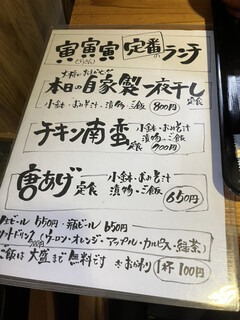 寅寅寅 定番のランチ
本日の自家製一夜干し
小鉢・おみそ汁・漬物・ご飯 800円
定食
チキン南蛮 小鉢・おみそ汁
漬物・ご飯
定食 700円
唐あげ 小鉢・おみそ汁
定食 漬物・ご飯 650円
生ビール 550円・瓶ビール 650円
ソフトドリンク (ウーロン・オレンジ・アップル・カルピス・緑茶)
ご飯は大盛まで無料です おかわり 1杯100円